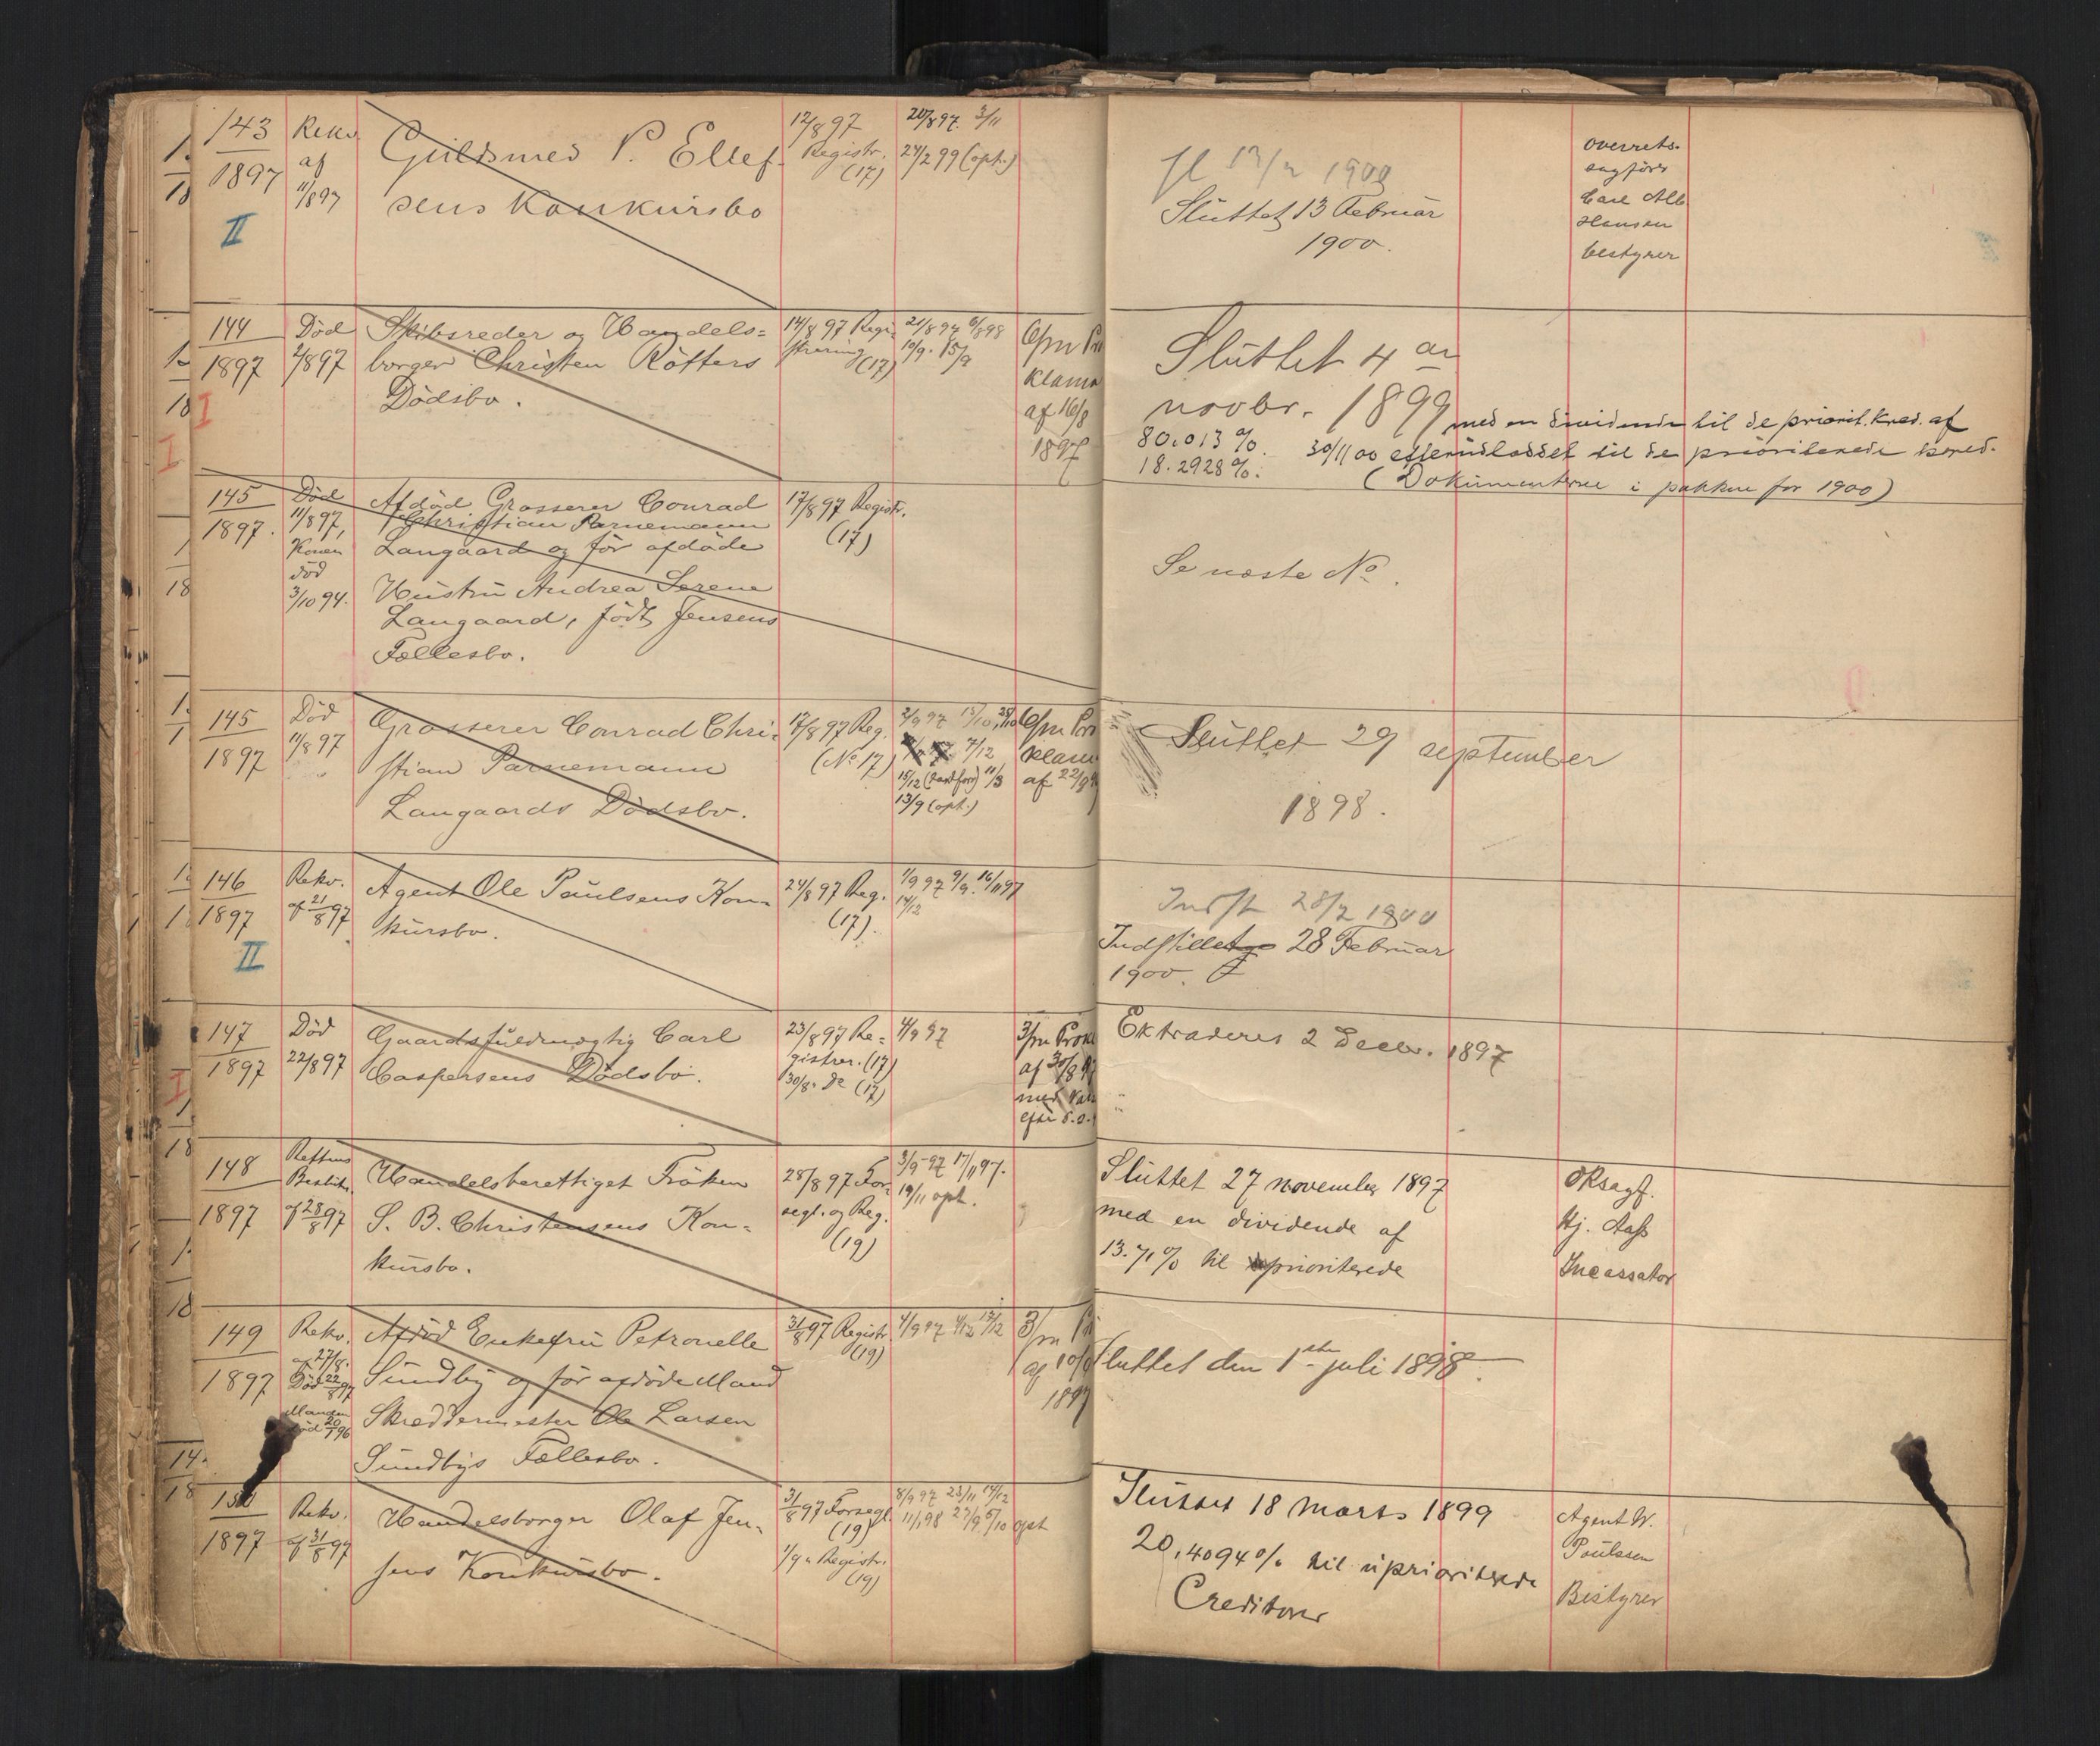 143
1897
II
Rekv.
af
11/8 97
Guldsmed P. Ellef-
sens Konkursbo
12/8 97
Registr.
(17)
20/8 97. 3/11
24/2 99 (opt.)
13/2 1900
Sluttet 13 Februar
1900.
overrets-
sagförer
Carl Alb
Hansen
bestyrer
144
1897
I
Död
2/8 97
Skibsreder og Handels-
borger Christen Röfters
Dödsbo.
14/8 97 Regi-
strering
(17)
21/8 97 6/8 98
10/9. 15/9
6/m Pro
klama
af 16/8
1897
Sluttet 4 de
novbr. 1899
med en dividende til de priorit. kred. af
80.013 %. 30/11 00 efterudloddet til de prioriterede kred.
18.2928 %.
(Dokumenterne i pakken for 1900)
145
1897.
Död
11/8 97,
Konen
död
3/10 94.
Afdöd Grosserer Conrad
Christian Parnemann
Langaard og för afdöde
Hustru Andrea Serene
Langaard, födt Jensens
Fællesbo.
17/8 97 Registr.
(17)
Se næste No.
145
1897
Död
11/8 97
Grosserer Conrad Chri-
stian Parnemann
Langaards Dödsbo.
17/8 97 Reg.
(No 17)
2/9 97 15/10, 28/10
7/12
15/12 11/3
13/9 (opt.)
6/m Pro
klama
af 22/9
Sluttet 29 september
1898.
146
1897
II
Rekv.
af 21/8 97
Agent Ole Paulsens Kon-
kursbo.
24/8 97 Reg.
(17).
1/9 97 9/9. 16/11 97
14/12
Indst 28/2 1900
Indstillet 28 Februar
1900.
147
1897
I
Död
22/8 97
Gaardsfuldmægtig Carl
Caspersens Dödsbo.
23/8 97 Re-
gistrer. (17)
30/8 " do (17)
4/9 97
3/m Prokl
af 30/8 97
med Vars
efter
Extraderes 2 Decbr. 1897
148
1897
Rettens
Beslutn.
af 28/8 97
Handelsberettiget Fröken
S. B. Christensens Kon-
kursbo.
28/8 97 For-
segl. og Reg.
(19)
3/9 97 17/11 97.
19/11 opt.
Sluttet 27 november 1897
med en dividende af
13.71 % til uprioriterede
ORsagf.
Hj. Aass
Incassator
149
1897
Rekv.
af 27/8.
Död 22/8 97
Manden
död 20/7 96
Afdöd Enkefru Petronelle
Sundby og för afdöde Mand
Skreddermester Ole Larsen
Sundbys Fællesbo.
31/8 97 Registr.
(19)
4/9 97 4/12 13/12
3/m Pr
af 10/9
1897
Sluttet den 1ste juli 1898.
150
1897
Rekv.
af 31/8 97
Handelsborger Olaf Jen-
sens Konkursbo.
31/8 97 Forsegl.
(19)
1/9 " Registr.
(19)
8/9 97 23/11 14/12
11/1 98 27/9 5/10 opt
Sluttet 18 Marts 1899
20,4094 % til uprioriterede
Creditorer
Agent W.
Poulssen
Bestyrer